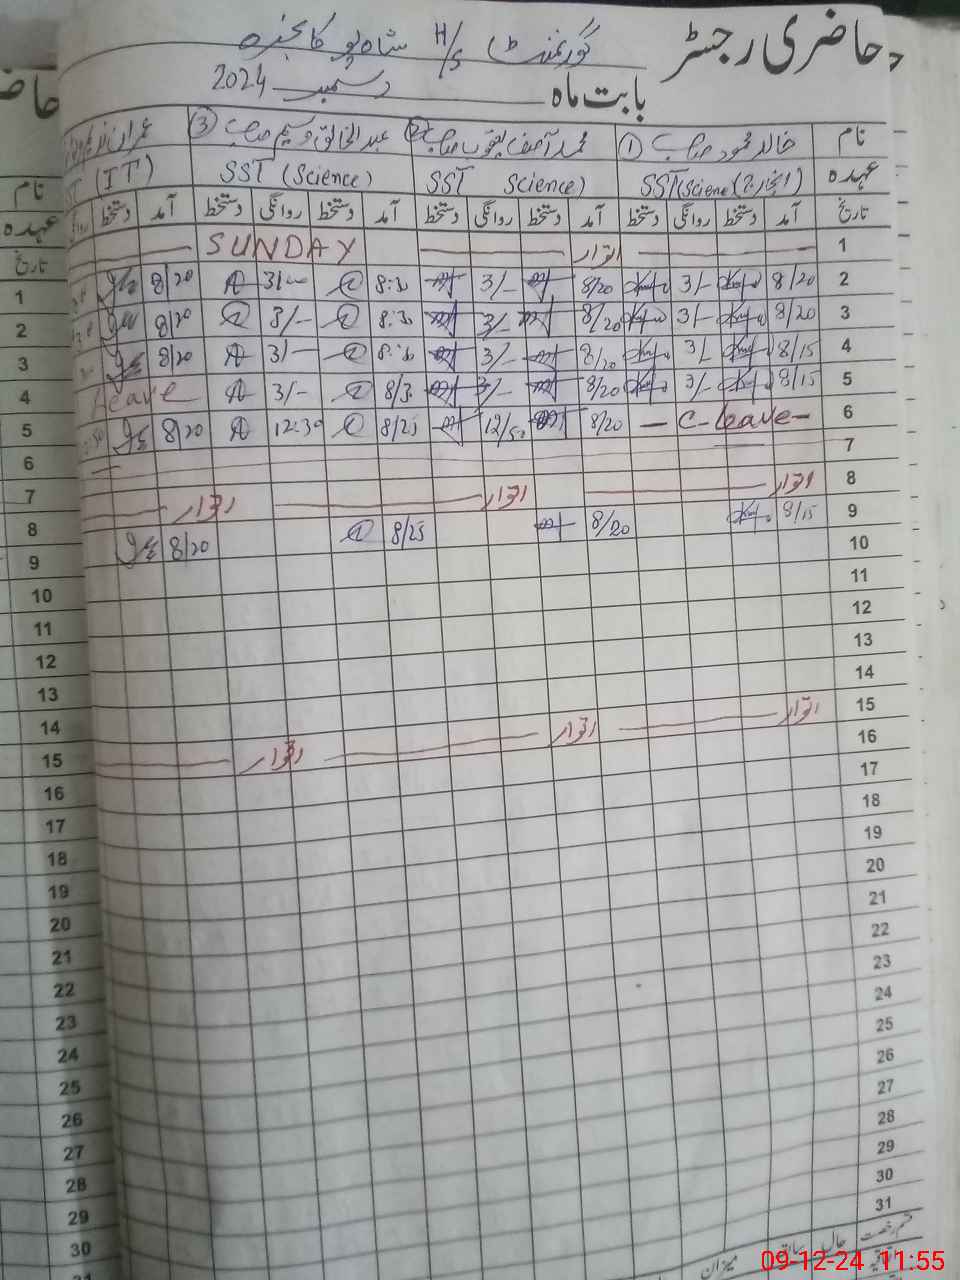 حاضری رجسٹر
گورنمنٹ H/S شاہ پور کانجرہ
بابت ماہ دسمبر 2024
نام ① خالد محمود صاحب ② محمد آصف یعقوب صاحب ③ عبدالخالق وسیم صاحب
عہدہ SST(Science) (انچارج) SST Science) SST (Science) (IT)
تاریخ آمد دستخط روانگی دستخط آمد دستخط روانگی دستخط آمد دستخط روانگی دستخط آمد دستخط
1 اتوار SUNDAY
2 8/20 3/- 8/20 3/- 8:30 3/00 8/20
3 8/20 3/- 8/20 3/- 8:30 3/- 8/20
4 8/15 3/- 8/20 3/- 8:30 3/- 8/20
5 8/15 3/- 8/20 3/- 8/30 3/- Leave
6 - C-leave- 8/20 12/50 8/25 12:30 8/20
7
8 اتوار اتوار اتوار
9 8/15 8/20 8/25 8/20
10
11
12
13
14
15 اتوار اتوار اتوار
16
17
18
19
20
21
22
23
24
25
26
27
28
29
30
31
میزان سابقہ حال
نام
عہدہ
تاریخ
1
2
3
4
5
6
7
8
9
10
11
12
13
14
15
16
17
18
19
20
21
22
23
24
25
26
27
28
29
30
31
09-12-24 11:55